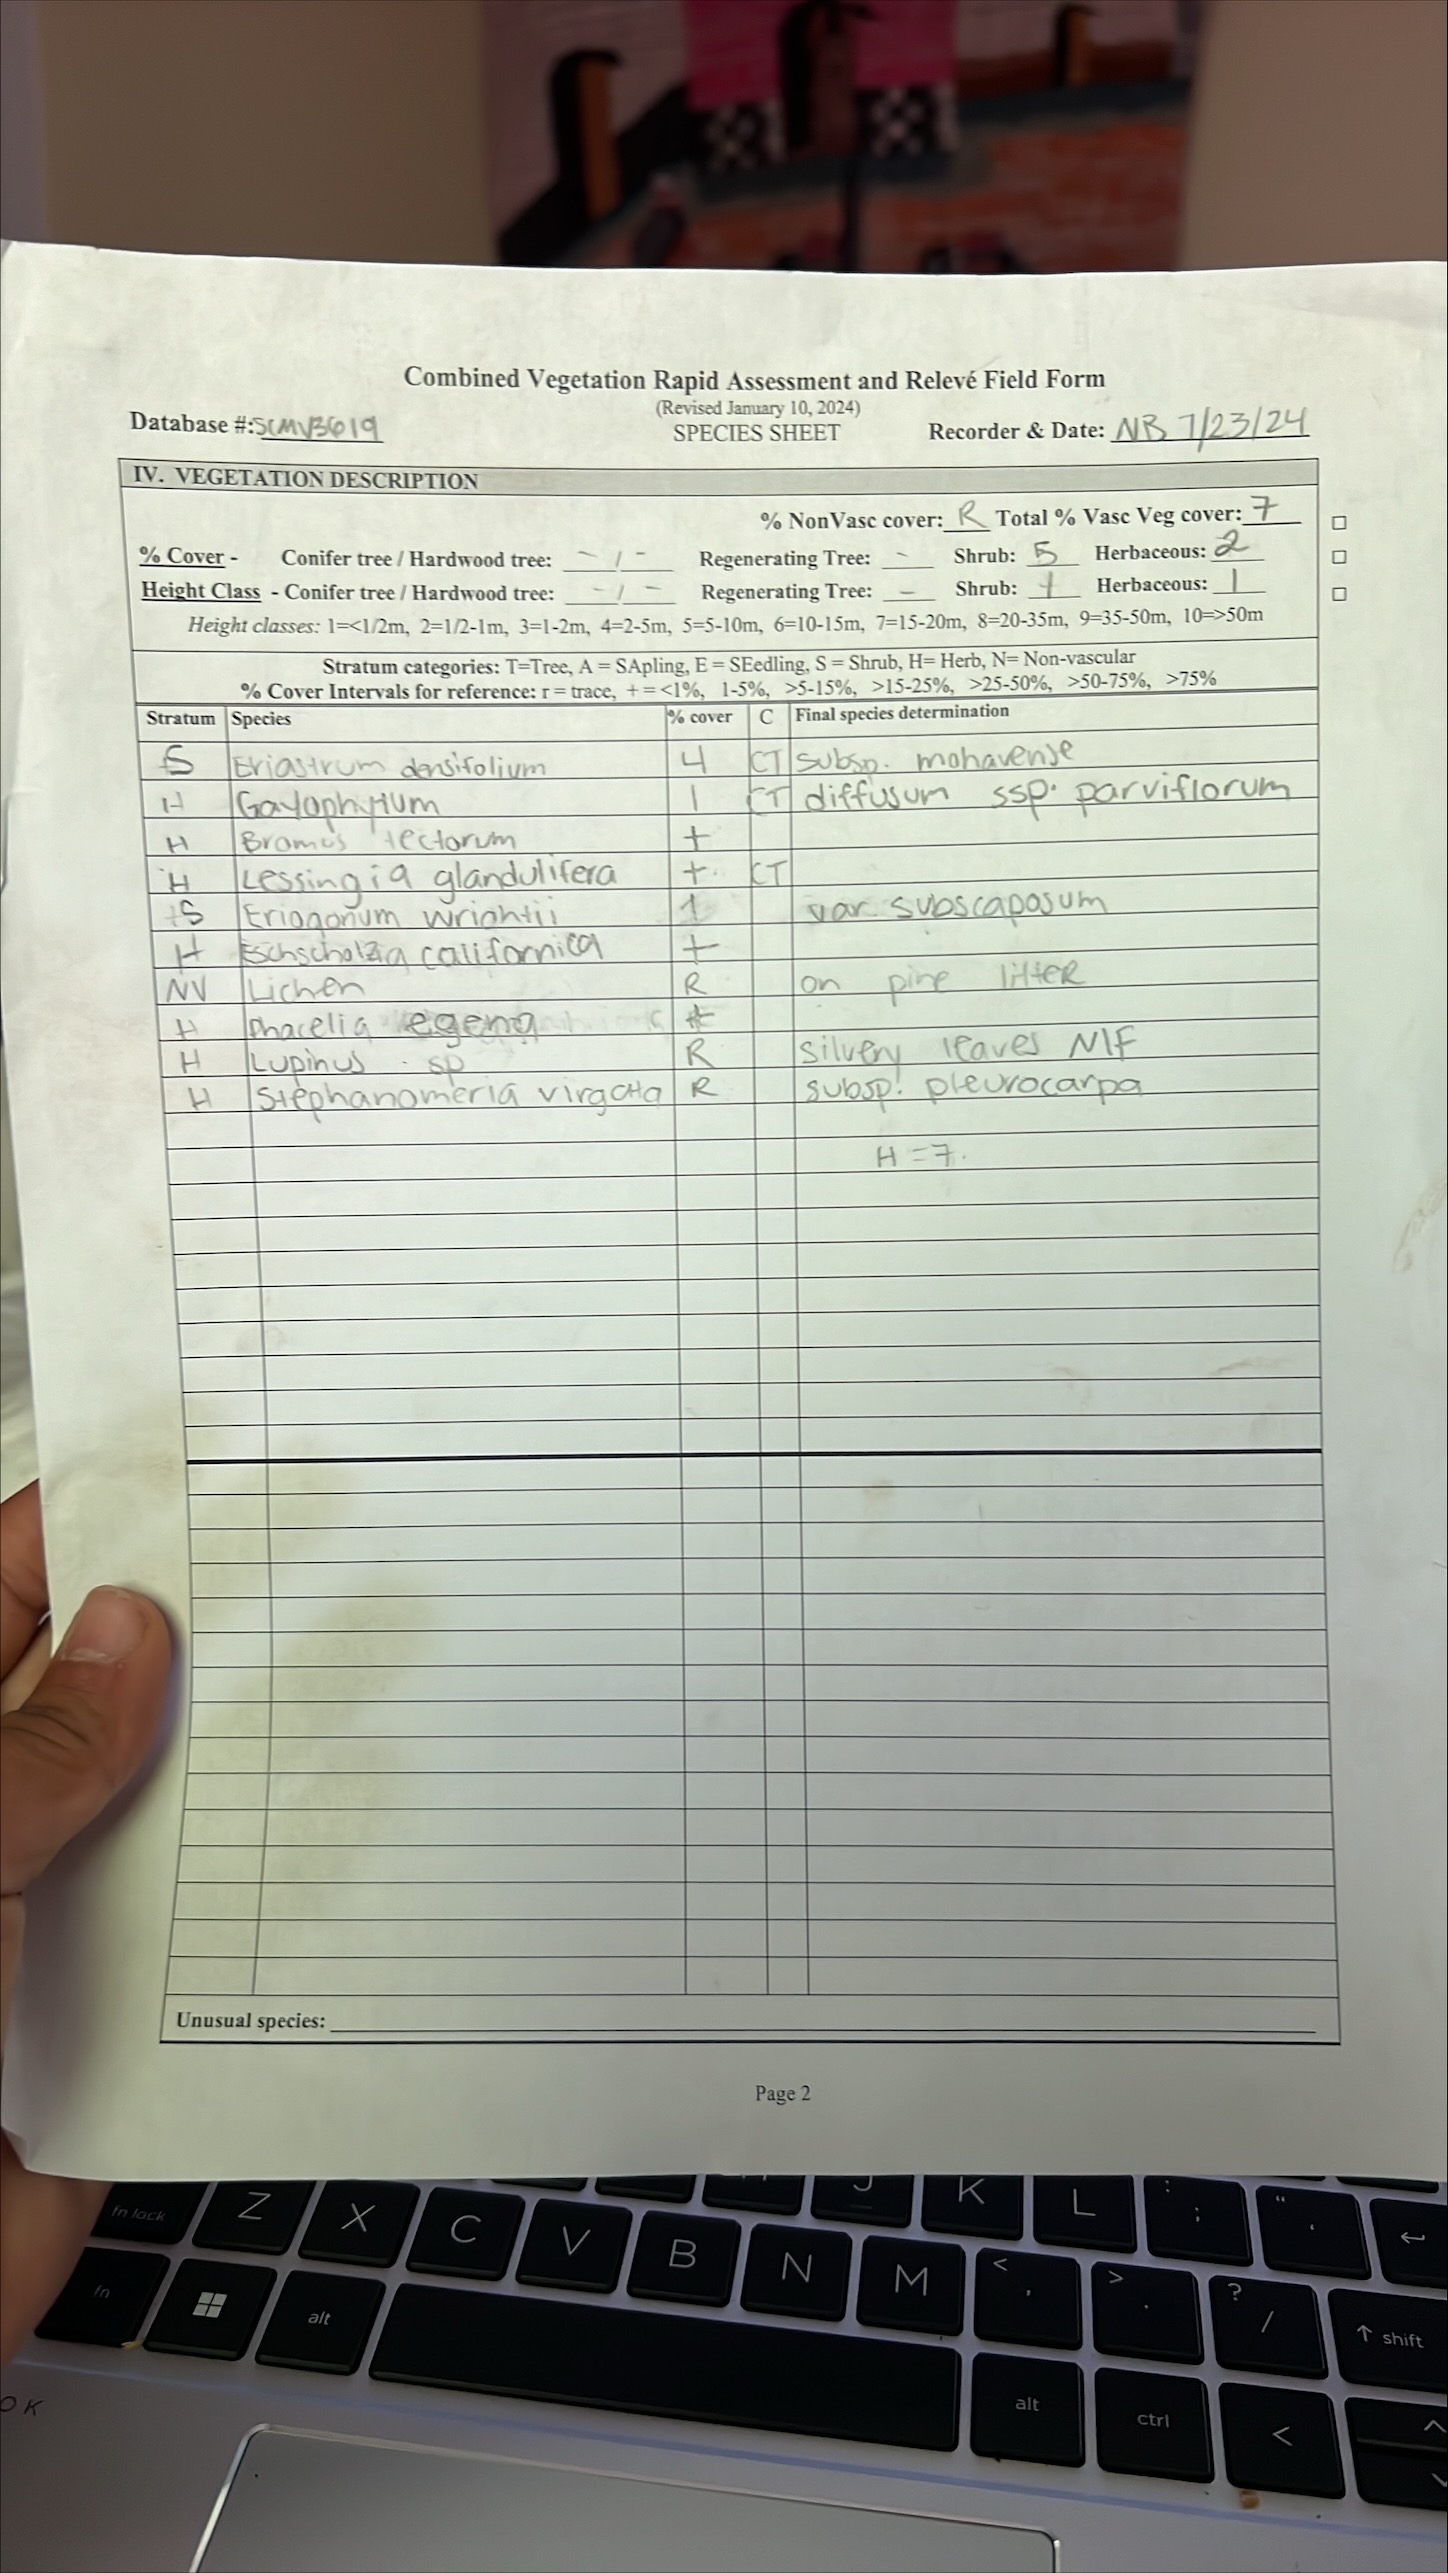 Combined Vegetation Rapid Assessment and Relevé Field Form
(Revised January 10, 2024)
Database #: SCMV3619 SPECIES SHEET Recorder & Date: NB 7/23/24
IV. VEGETATION DESCRIPTION
% NonVasc cover: R Total % Vasc Veg cover: 7
% Cover - Conifer tree / Hardwood tree: - / - Regenerating Tree: - Shrub: 5 Herbaceous: 2
Height Class - Conifer tree / Hardwood tree: - / - Regenerating Tree: - Shrub: 1 Herbaceous: 1
Height classes: 1=<1/2m, 2=1/2-1m, 3=1-2m, 4=2-5m, 5=5-10m, 6=10-15m, 7=15-20m, 8=20-35m, 9=35-50m, 10=>50m
Stratum categories: T=Tree, A = SApling, E = SEedling, S = Shrub, H= Herb, N= Non-vascular
% Cover Intervals for reference: r = trace, + = <1%, 1-5%, >5-15%, >15-25%, >25-50%, >50-75%, >75%
Stratum Species % cover C Final species determination
S Eriastrum densifolium 4 CT subsp. mohavense
H Gayophytum 1 CT diffusum ssp. parviflorum
H Bromus tectorum +
H Lessingia glandulifera + CT
S Eriogonum wrightii 1 var. subscaposum
H Eschscholzia californica +
NV Lichen R on pine litter
H Phacelia egena +
H Lupinus sp R silvery leaves NIF
H Stephanomeria virgata R subsp. pleurocarpa
H = 7.
Unusual species:
Page 2
fn lock Z X C V B N M J K L : ; " '
fn alt < , > . ? / ↑ shift
alt ctrl <
OK